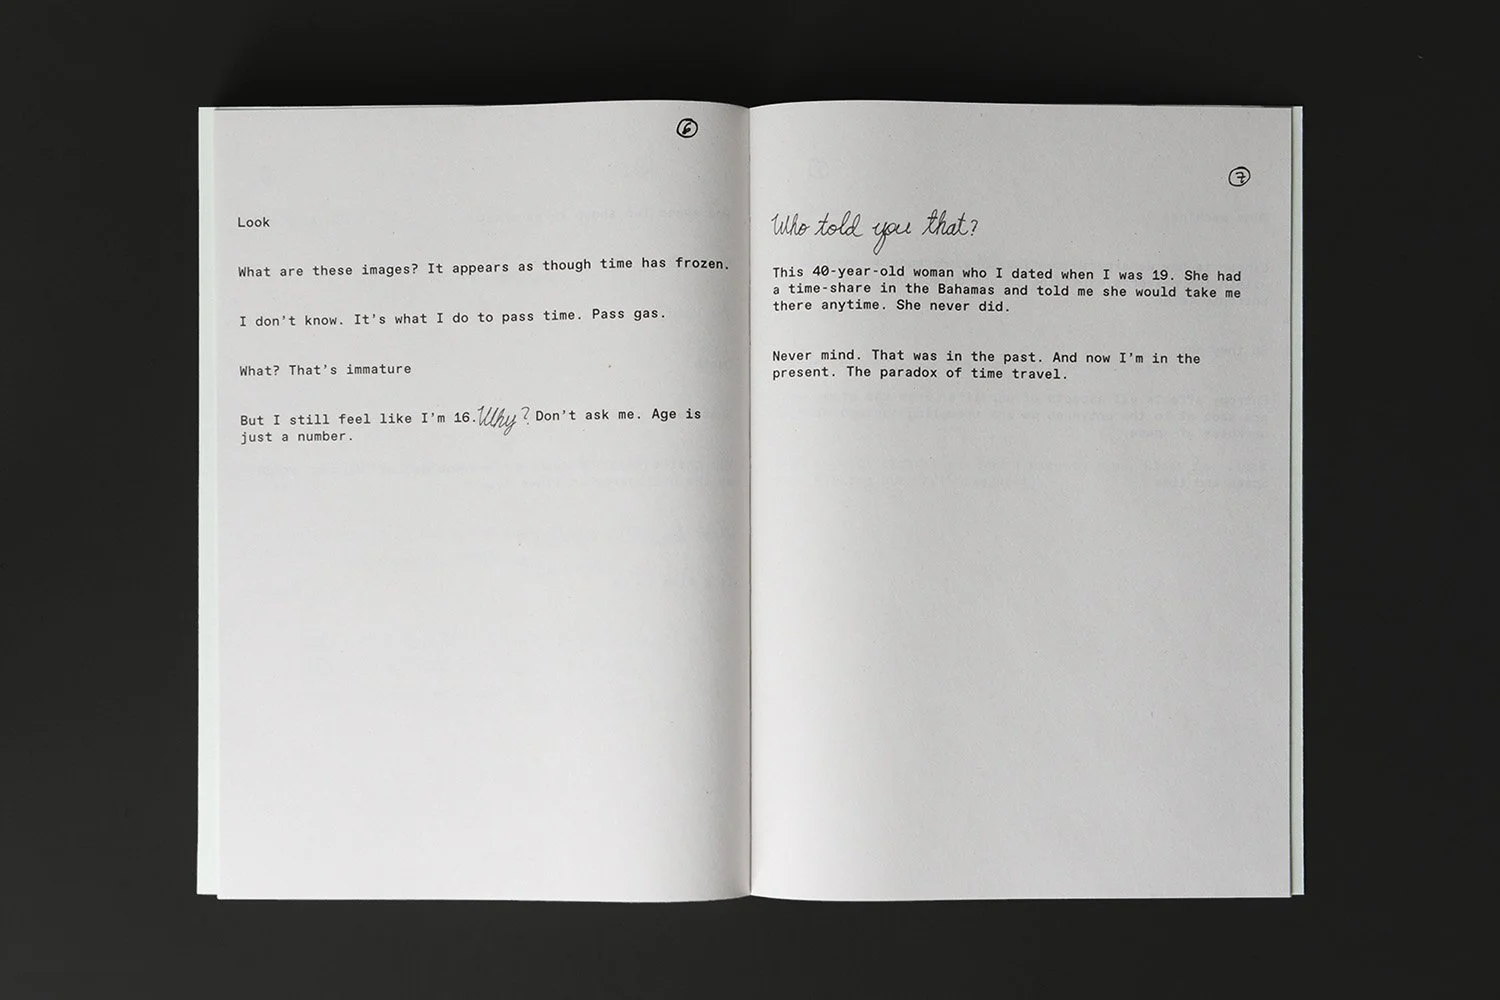 6
Look
What are these images? It appears as though time has frozen.
I don't know. It's what I do to pass time. Pass gas.
What? That's immature
But I still feel like I'm 16. Why? Don't ask me. Age is
just a number.
7
Who told you that?
This 40-year-old woman who I dated when I was 19. She had
a time-share in the Bahamas and told me she would take me
there anytime. She never did.
Never mind. That was in the past. And now I'm in the
present. The paradox of time travel.